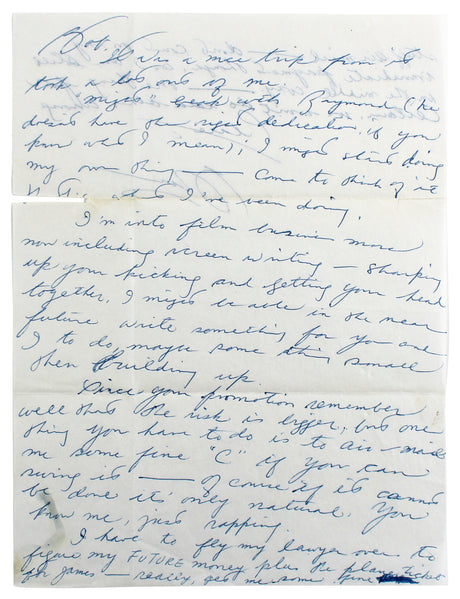 Bob, It was a nice trip for it
took a load out of me.
"might" break with Raymond (he
doesn't have the right dedication, if you
know who I mean); I might start doing
my own thing — come to think of it
what I've been doing.
I'm into film business more
now including screen writing — sharping
up your kicking and getting your head
together. I might be able in the near
future write something for you and
I to do, maybe some thing small
then building up.
Since your promotion remember
well that the risk is bigger; but one
thing you have to do is to air-mail
me some fine "C" if you can
swing it — of course if it cannot
be done it's only natural. You
know me, just rapping.
I have to fly my lawyer over to
figure my FUTURE money plus the plane ticket
for James — really, get me some fine